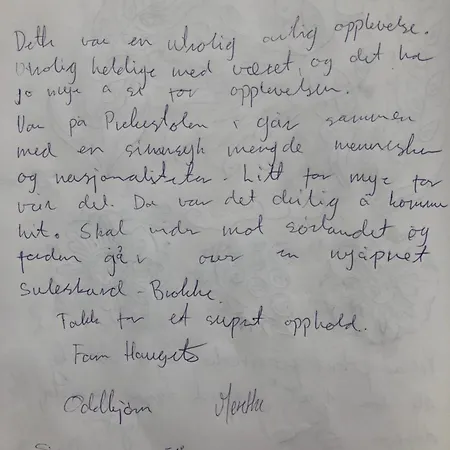 Dette var en utrolig artig opplevelse.
Utrolig heldige med været, og det har
jo mye å si for opplevelsen.
Var på Preikestolen i går sammen
med en sinnsyk mengde mennesker
og nasjonaliteter. Litt for mye for
vår del. Da var det deilig å komme
hit. Skal vider mot sørlandet og
ferden går over en nyåpnet
Suleskard - Brokke.
Takk for et supert opphold.
Fam Haugeto
Oddbjørn Merethe